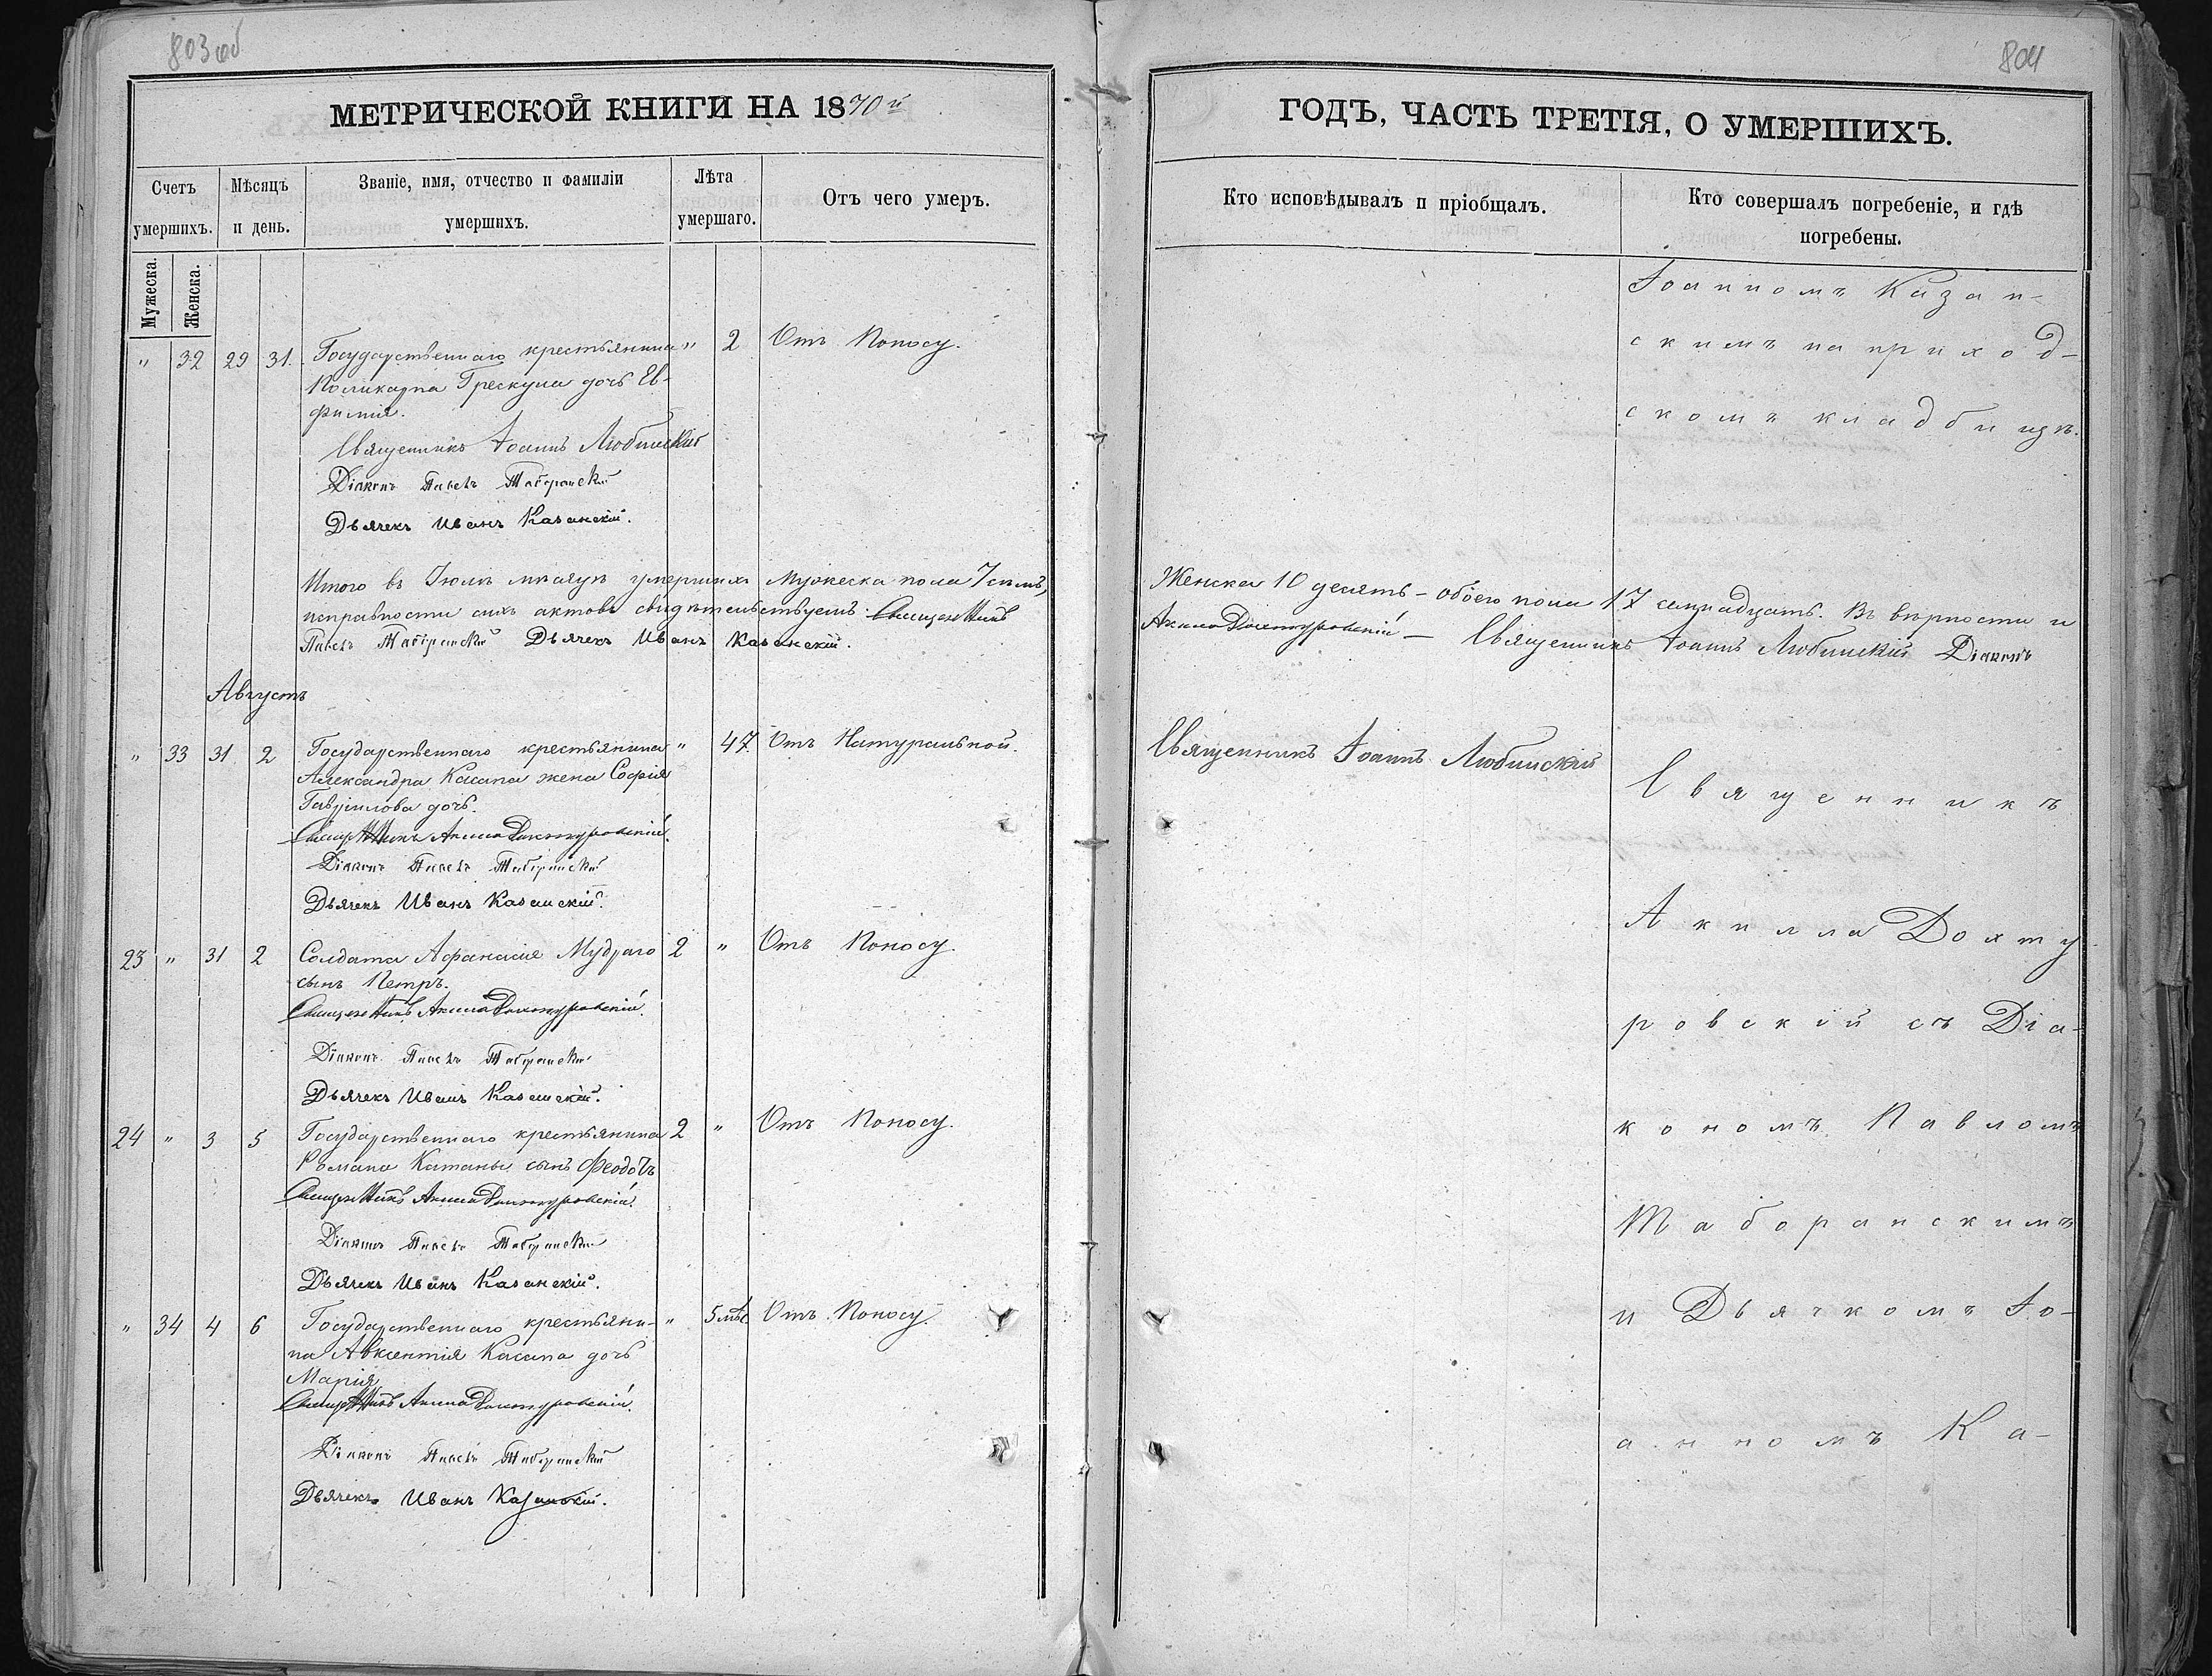 803 об
МЕТРИЧЕСКОЙ КНИГИ НА 1870й
Счетъ умершихъ.
Мѣсяцъ и день.
Званіе, имя, отчество и фамиліи умершихъ.
Лѣта умершаго.
Отъ чего умеръ.
Мужеска.
Женска.
" 32 29 31. Государственнаго крестьянина " 2 Отъ Поносу.
Поликарпа Грескула дочь Ев-
фимія.
Священникъ Іоаннъ Любинскій
Діаконъ Павелъ Таборанскій
Дьячекъ Иванъ Казанскій.
Итого въ Іюлѣ мѣсяцѣ умершихъ Мужеска пола 7 семь,
исправности сихъ актовъ свидѣтельствуемъ: Священникъ
Павелъ Таборанскій Дьячекъ Иванъ Казанскій.
Августъ
" 33 31 2 Государственнаго крестьянина " 47 Отъ Натуральной.
Александра Касапа жена Софія
Гавріилова дочь.
Священникъ Акила Дохтуровскій.
Діаконъ Павелъ Таборанскій
Дьячекъ Иванъ Казанскій.
23 " 31 2 Солдата Афанасія Мудраго 2 " Отъ Поносу.
сынъ Петръ.
Священникъ Акила Дохтуровскій.
Діаконъ Павелъ Таборанскій
Дьячекъ Иванъ Казанскій.
24 " 3 5 Государственнаго крестьянина 2 " Отъ Поносу.
Романа Катаны сынъ Феодотъ
Священникъ Акила Дохтуровскій.
Діаконъ Павелъ Таборанскій
Дьячекъ Иванъ Казанскій.
" 34 4 6 Государственнаго крестьяни- " 5 мѣс. Отъ Поносу.
на Авксентія Касапа дочь
Марія
Священникъ Акила Дохтуровскій.
Діаконъ Павелъ Таборанскій
Дьячекъ Иванъ Казанскій.
804
ГОДЪ, ЧАСТЬ ТРЕТІЯ, О УМЕРШИХЪ.
Кто исповѣдывалъ и пріобщалъ.
Кто совершалъ погребеніе, и гдѣ
погребены.
Іоанномъ Казан-
скимъ на приход-
скомъ кладбищѣ.
Женска 10 десять – обоего пола 17 семнадцать. Въ вѣрности и
Акила Дохтуровскій — Священникъ Іоаннъ Любинскій Діаконъ
Священникъ Іоаннъ Любинскій
Священникъ
Акилла Дохту
ровскій съ Діа-
кономъ Павломъ
Таборанскимъ
и Дьячкомъ Іо-
анномъ Ка-